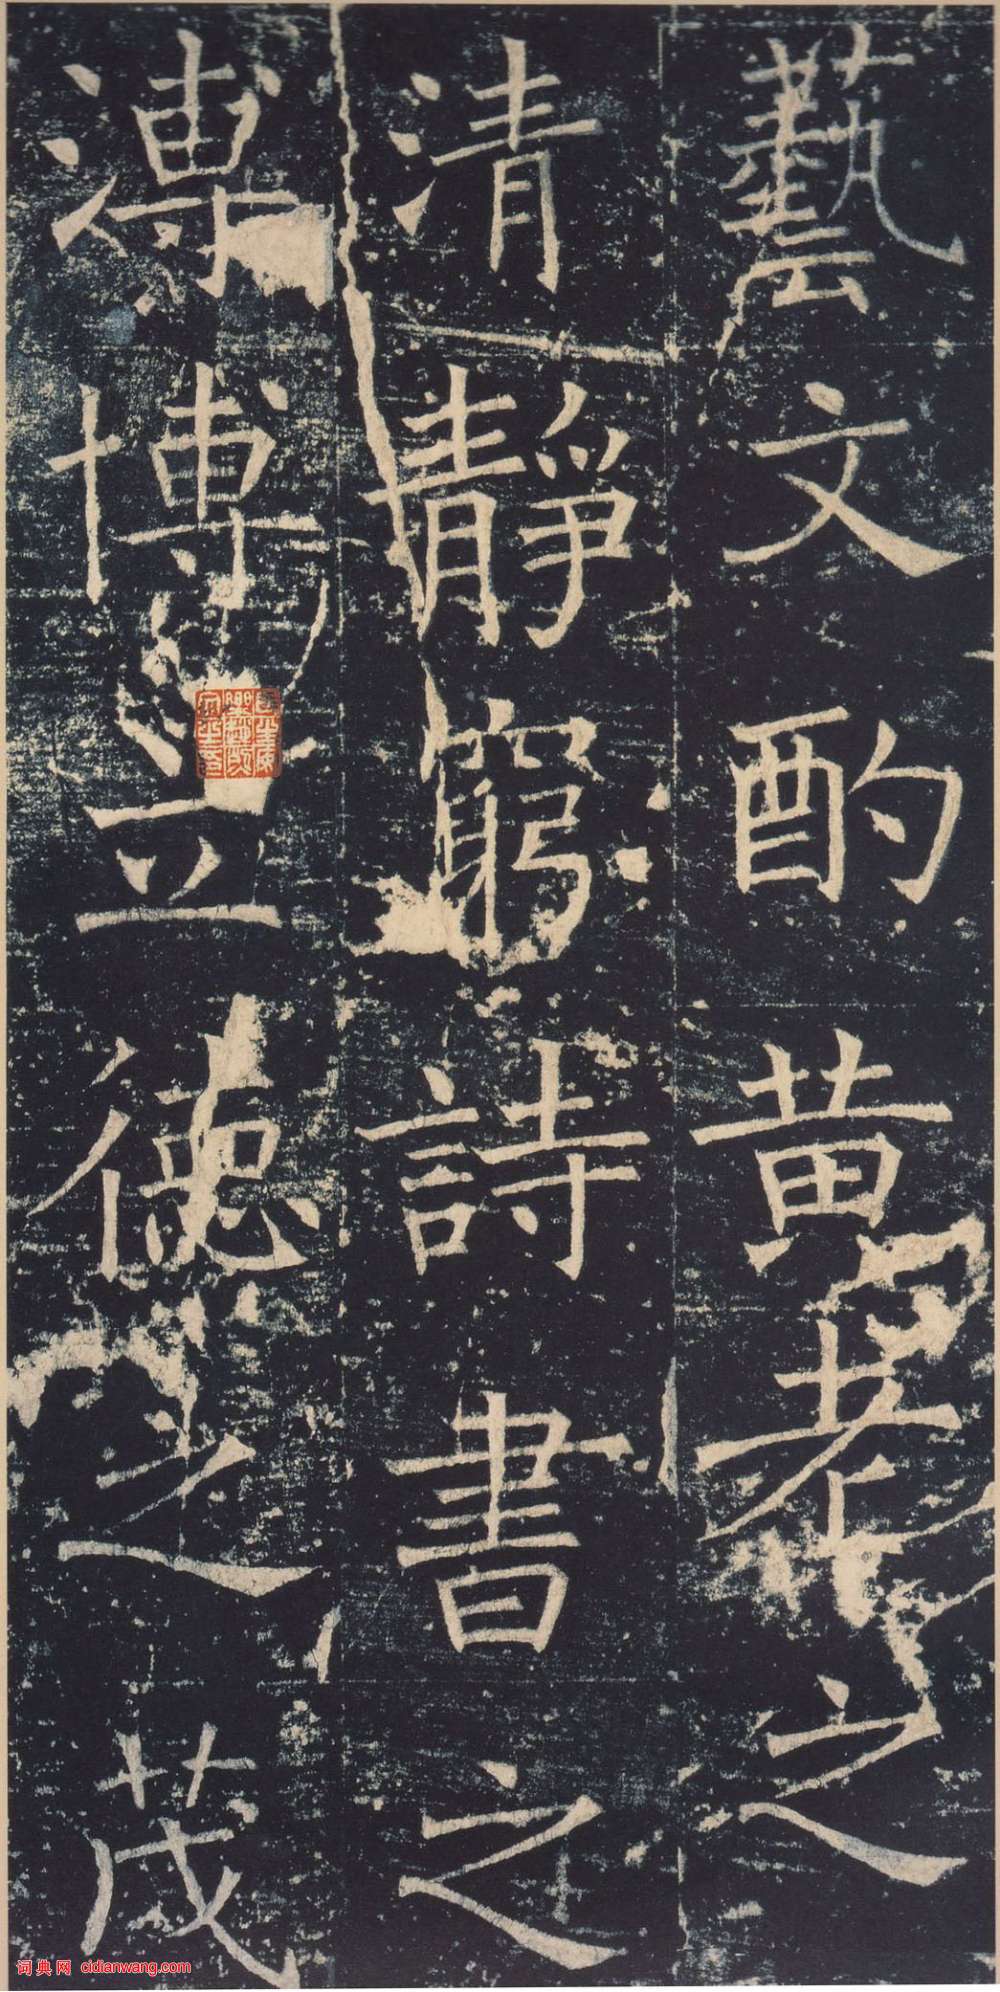 藝文酌黃老之
清靜窮詩書之
溥博立德之茂
词典网 cidianwang.com